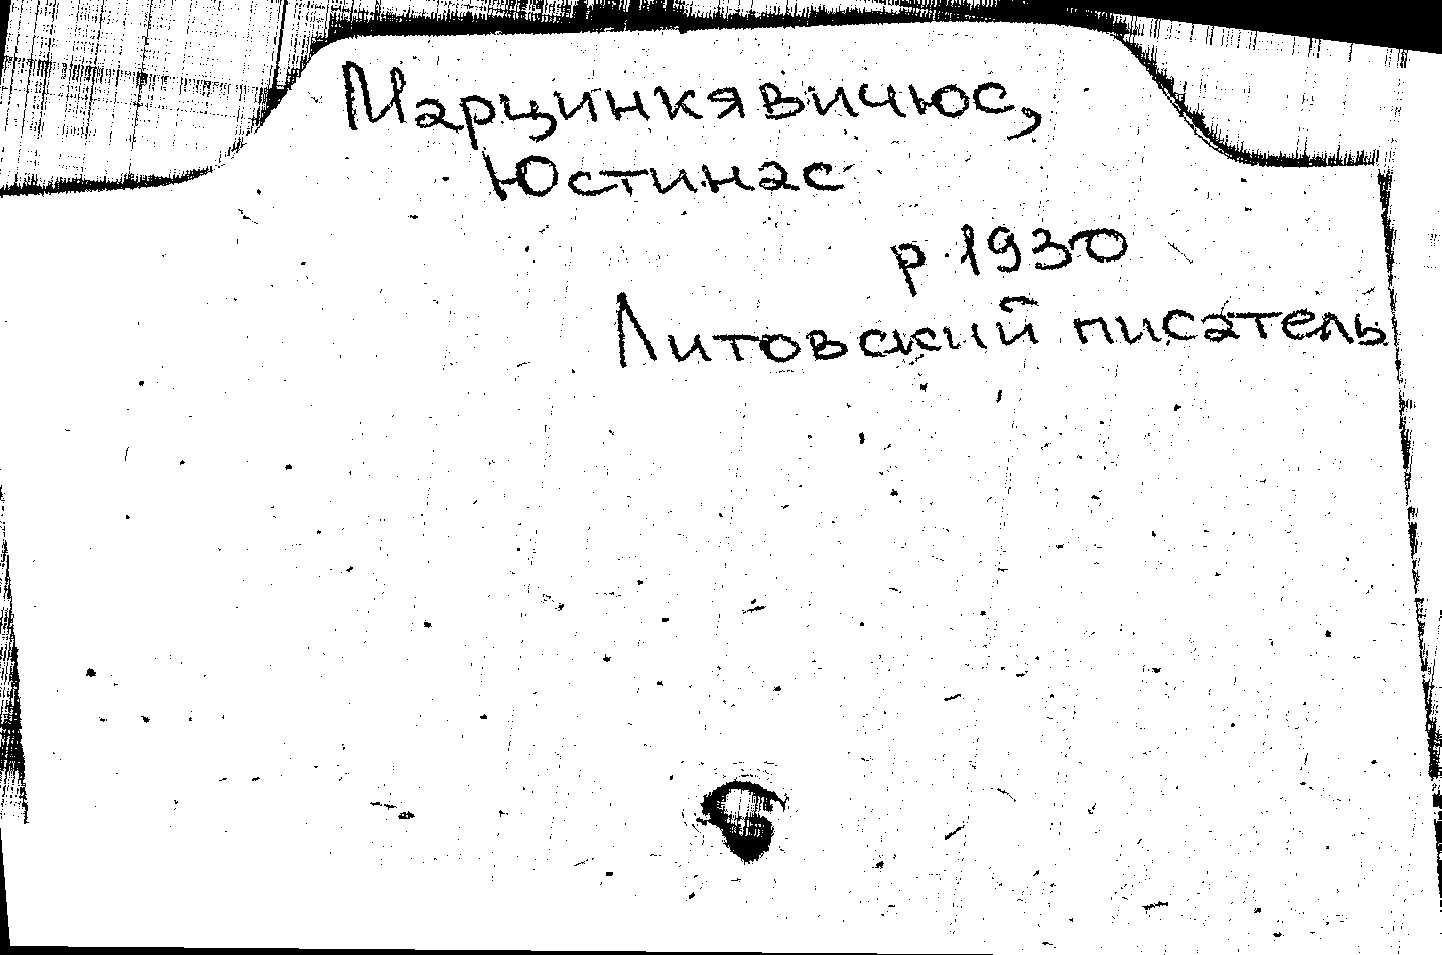 Марцинкявичюс,
Юстинас
р 1930
Литовский писатель